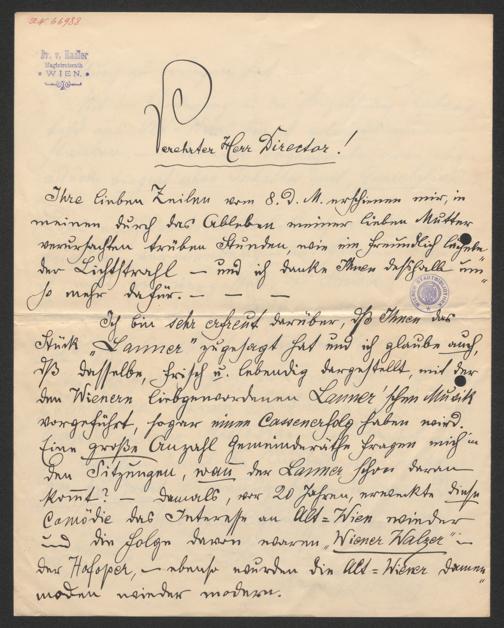 Dr. v. Radler
Magistratsrath
WIEN.
Verehrter Herr Director!
Ihre lieben Zeilen vom 8. d. M. erschienen mir, in
meinen durch das Ableben meiner lieben Mutter
verursachten trüben Stunden, wie ein freundlich lächeln-
der Lichtstrahl — und ich danke Ihnen deßhalb um
so mehr dafür. — — —
Ich bin sehr erfreut darüber, dß Ihnen das
Stück „Lanner" zugesagt hat und ich glaube auch,
dß dasselbe, frisch u. lebendig dargestellt, mit der
den Wienern liebgewordenen Lanner'schen Musik
vorgeführt, sogar einen Cassenerfolg haben wird.
Eine große Anzahl Gemeinderäthe fragen mich in
den Sitzungen, wan der Lanner schon daran
kommt? — Damals, vor 20 Jahren, erweckte diese
Comödie das Interesse an Alt=Wien wieder
und die Folge davon waren „Wiener Walzer" in
der Hofoper, — ebenso wurden die Alt=Wiener Damen-
moden wieder modern.